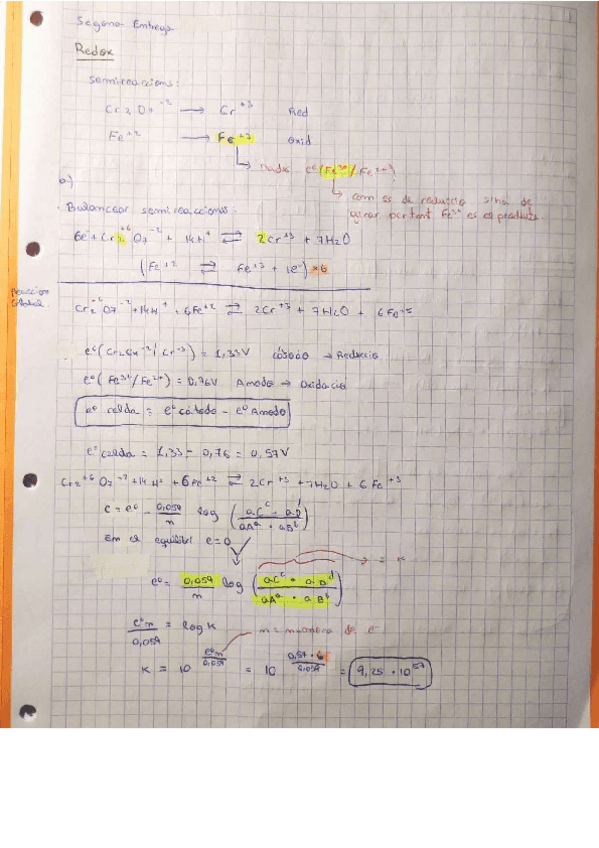 Segona Entrega
Redox
semireaccions:
Cr2O7⁻² → Cr⁺³ Red
Fe⁺² → Fe⁺³ Oxid
↳ e⁰(Fe³⁺/Fe²⁺)
↳ com es de reducció
girar, per tant Fe³⁺ es el producte
b)
· Balancear semireaccions:
6e⁻ + Cr2⁺⁶O7⁻² + 14H⁺ ⇌ 2Cr⁺³ + 7H2O
(Fe⁺² ⇌ Fe⁺³ + 1e⁻) ×6
Reaccion
Global
Cr2⁺⁶O7⁻² + 14H⁺ + 6Fe⁺² ⇌ 2Cr⁺³ + 7H2O + 6Fe⁺³
= 1,33V → Reduccio
e⁰(Fe³⁺/Fe²⁺) = 0,76V Anodo → Oxidacio
e⁰ celda = e⁰ cátodo - e⁰ Anodo
e⁰ celda = 1,33 - 0,76 = 0,57V
Cr2⁺⁶O7⁻² + 14H⁺ + 6Fe⁺² ⇌ 2Cr⁺³ + 7H2O + 6Fe⁺³
e = e⁰ - 0,059/n log (aCᶜ · aDᵈ / aAᵃ · aBᵇ)
En el equilibri e=0
e⁰ = 0,059/n log (aCᶜ · aDᵈ / aAᵃ · aBᵇ) → = K
e⁰n/0,059 = log K n = numero de e⁻
K = 10^(e⁰n/0,059) = 10^(0,57·6/0,059) = 9,25 · 10⁵⁷